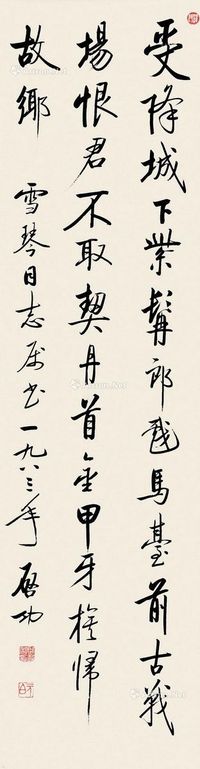 受降城下紫髯郎戲馬臺前古戰
場恨君不取契丹首金甲牙旗歸
故鄉
雪琴同志屬書一九八三年 啟功